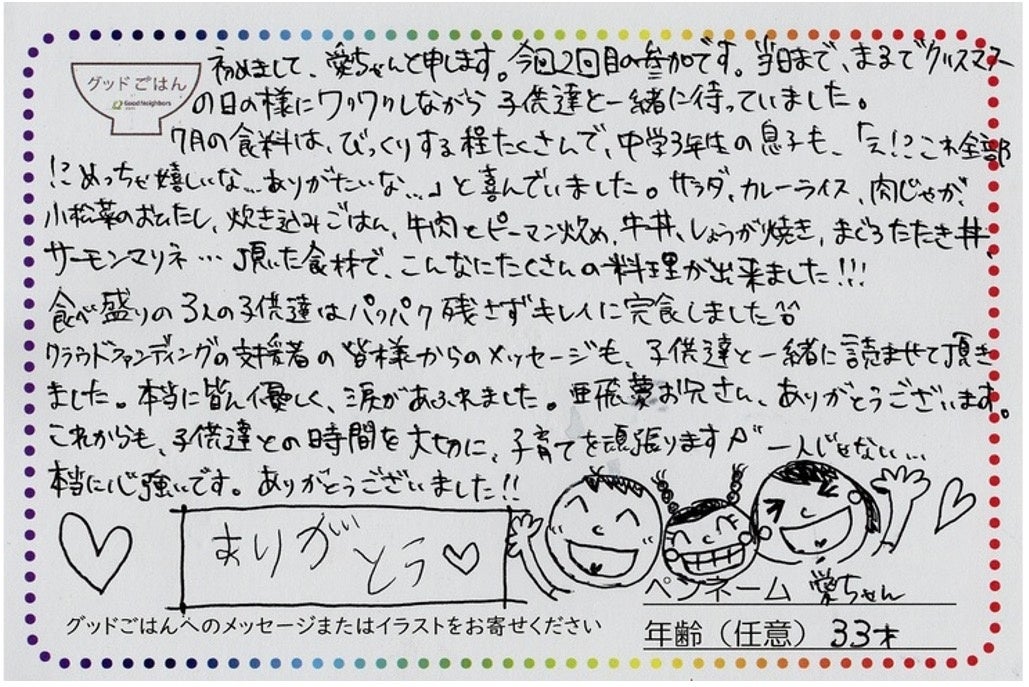 グッドごはん
Good Neighbors
初めまして、愛ちゃんと申します。今回2回目の参加です。当日まで、まるでクリスマス
の日の様にワクワクしながら子供達と一緒に待っていました。
7月の食料は、びっくりする程たくさんで、中学3年生の息子も、「え!?これ全部
!?めっちゃ嬉しいな…ありがたいな…」と喜んでいました。サラダ、カレーライス、肉じゃが、
小松菜のおひたし、炊き込みごはん、牛肉とピーマン炒め、牛丼、しょうが焼き、まぐろたたき丼、
サーモンマリネ…頂いた食材で、こんなにたくさんの料理が出来ました!!!
食べ盛りの3人の子供達はパクパク残さずキレイに完食しました
クラウドファンディングの支援者の皆様からのメッセージも、子供達と一緒に読ませて頂き
ました。本当に皆んな優しく、涙があふれました。亜飛夢お兄さん、ありがとうございます。
これからも、子供達との時間を大切に、子育てを頑張ります 一人じゃない…
本当に心強いです。ありがとうございました!!
ありがとう♡
ペンネーム 愛ちゃん
グッドごはんへのメッセージまたはイラストをお寄せください
年齢（任意） 33才